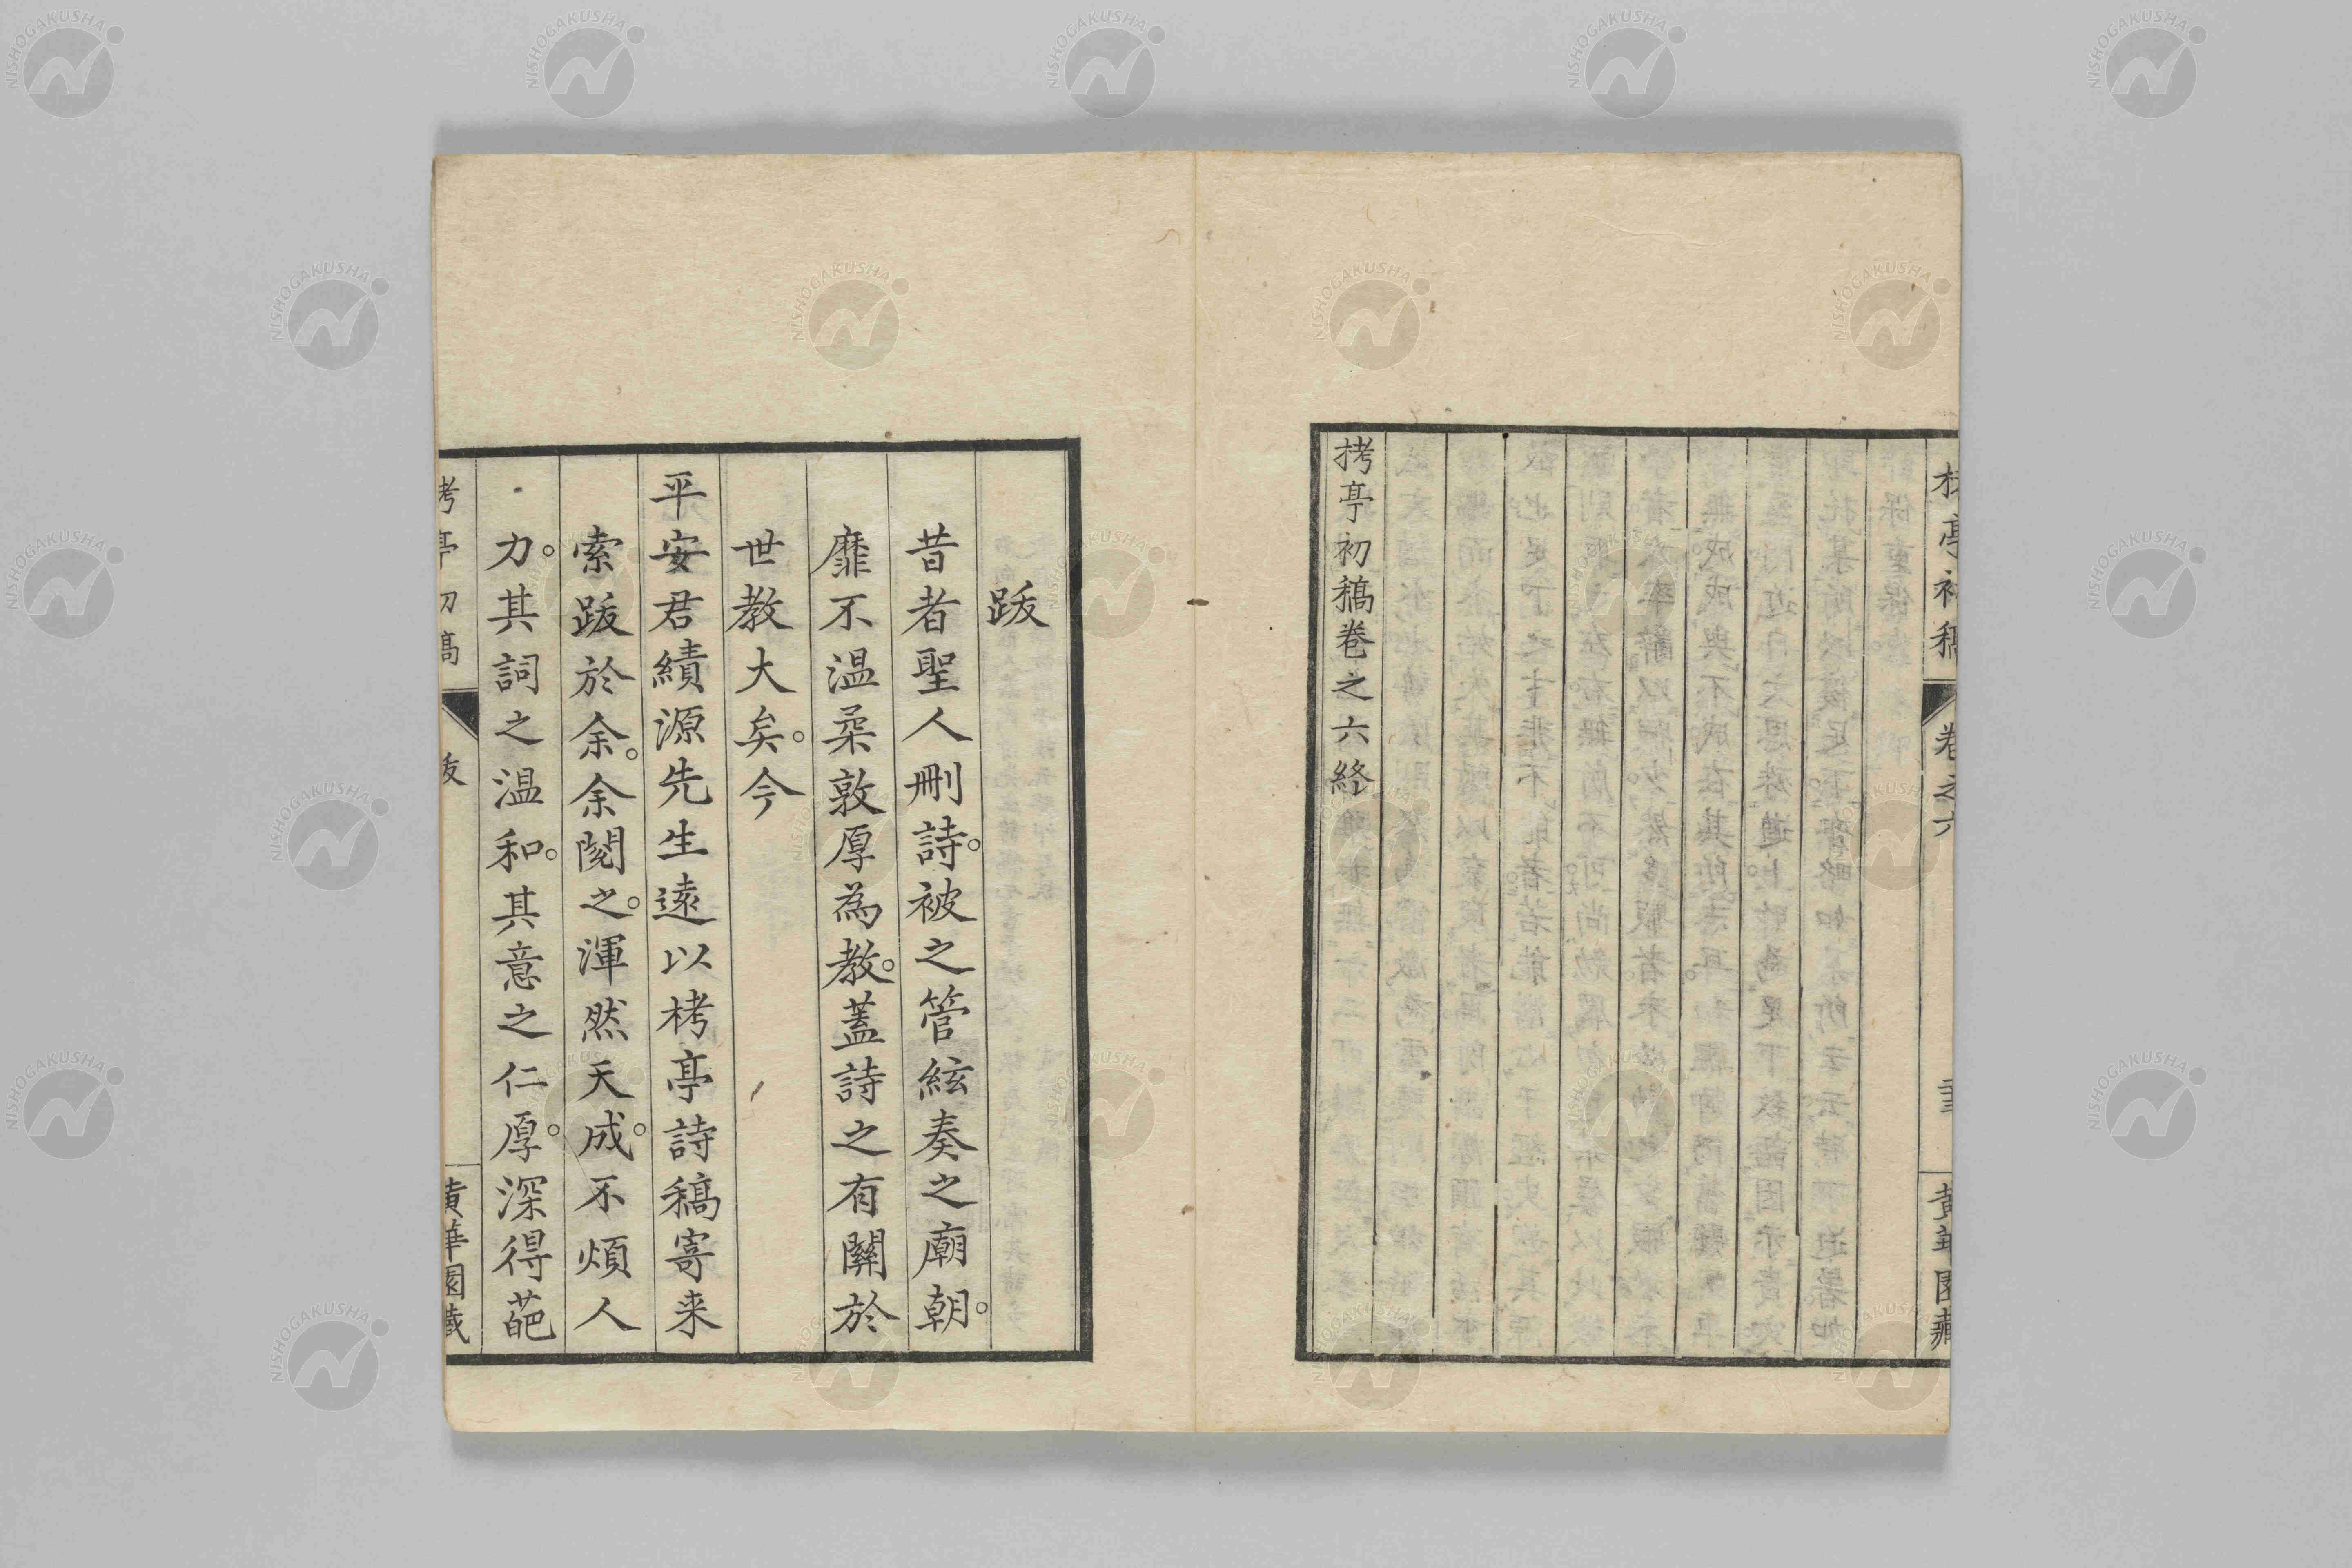 栲亭初稿
卷之六
黄華園藏
拷亭初稿卷之六終
跋
昔者聖人刪詩。被之管絃奏之廟朝。
靡不温柔敦厚為教。蓋詩之有關於
世教大矣。今
平安君績源先生遠以栲亭詩稿寄来
索跋於余。余閲之。渾然天成。不煩人
力。其詞之温和。其意之仁厚。深得葩
考亭初稿
跋
黄華園藏
NISHOGAKUSHA